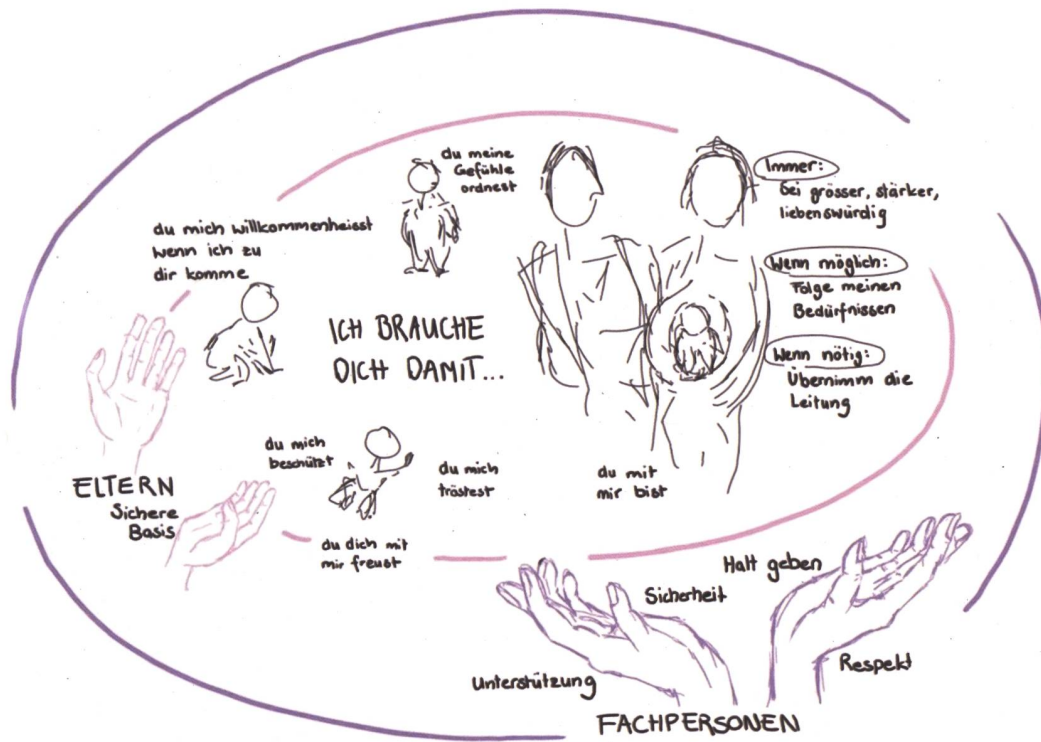 du meine
Gefühle
ordnest
Immer:
Sei grösser, stärker,
liebenswürdig
du mich willkommenheisst
wenn ich zu
dir komme
Wenn möglich:
Folge meinen
Bedürfnissen
ICH BRAUCHE
DICH DAMIT...
Wenn nötig:
Übernimm die
Leitung
du mich
beschützt
du mich
tröstest
du mit
mir bist
ELTERN
Sichere
Basis
du dich mit
mir freust
Halt geben
Sicherheit
Unterstützung
Respekt
FACHPERSONEN